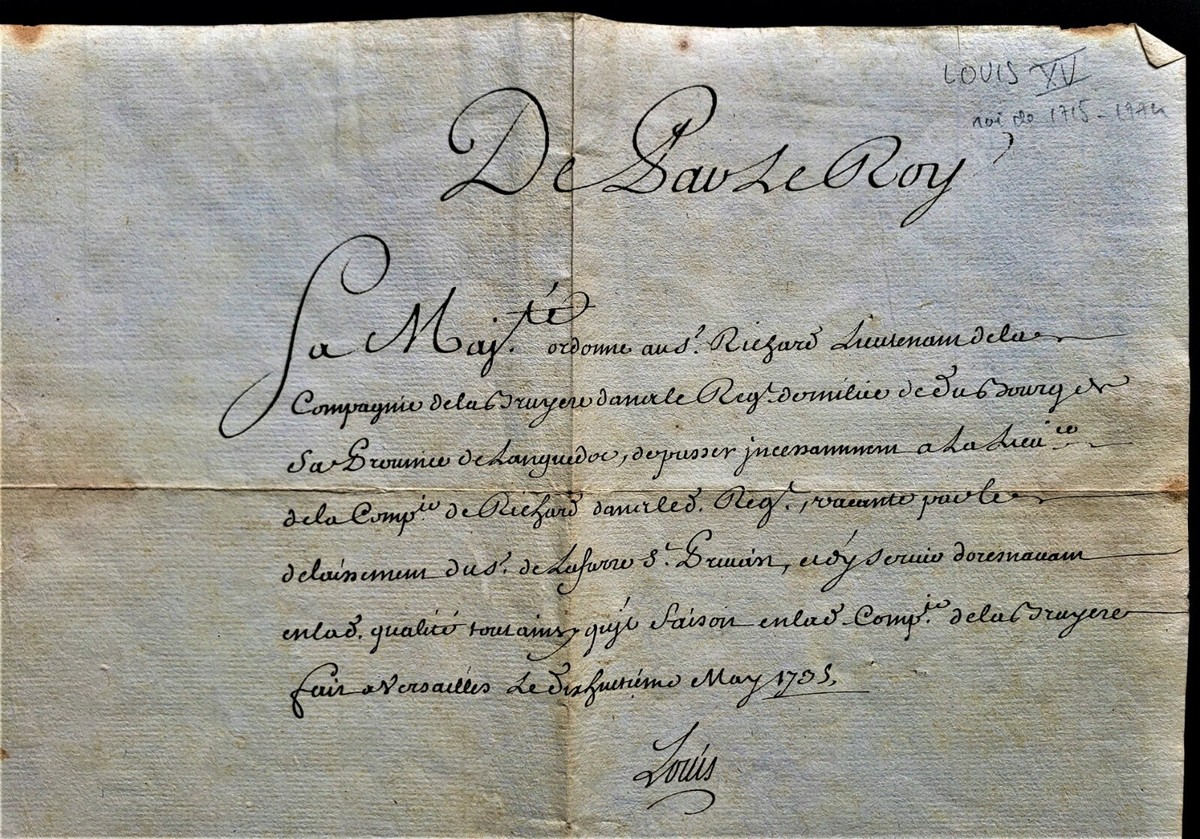 LOUIS XV
roi de 1715 - 1774
De Par Le Roy
Sa Maj.té ordonne au S.r Richard Lieutenant de la
Compagnie de la Bruyere dans le Reg.t de milice de Du Bourg de
Sa Province de Languedoc, de passer incessamment a La Lieu.ce
de la Comp.ie de Richard dans led. Reg.t, vacante par le
delaissement du S.r de S.t Privain, et d'y servir doresnavant
en lad. qualité tout ainsy qu'il faisoit en lad. Comp.ie de la Bruyere
fait a Versailles Le dixhuitiéme May 1735.
Louis